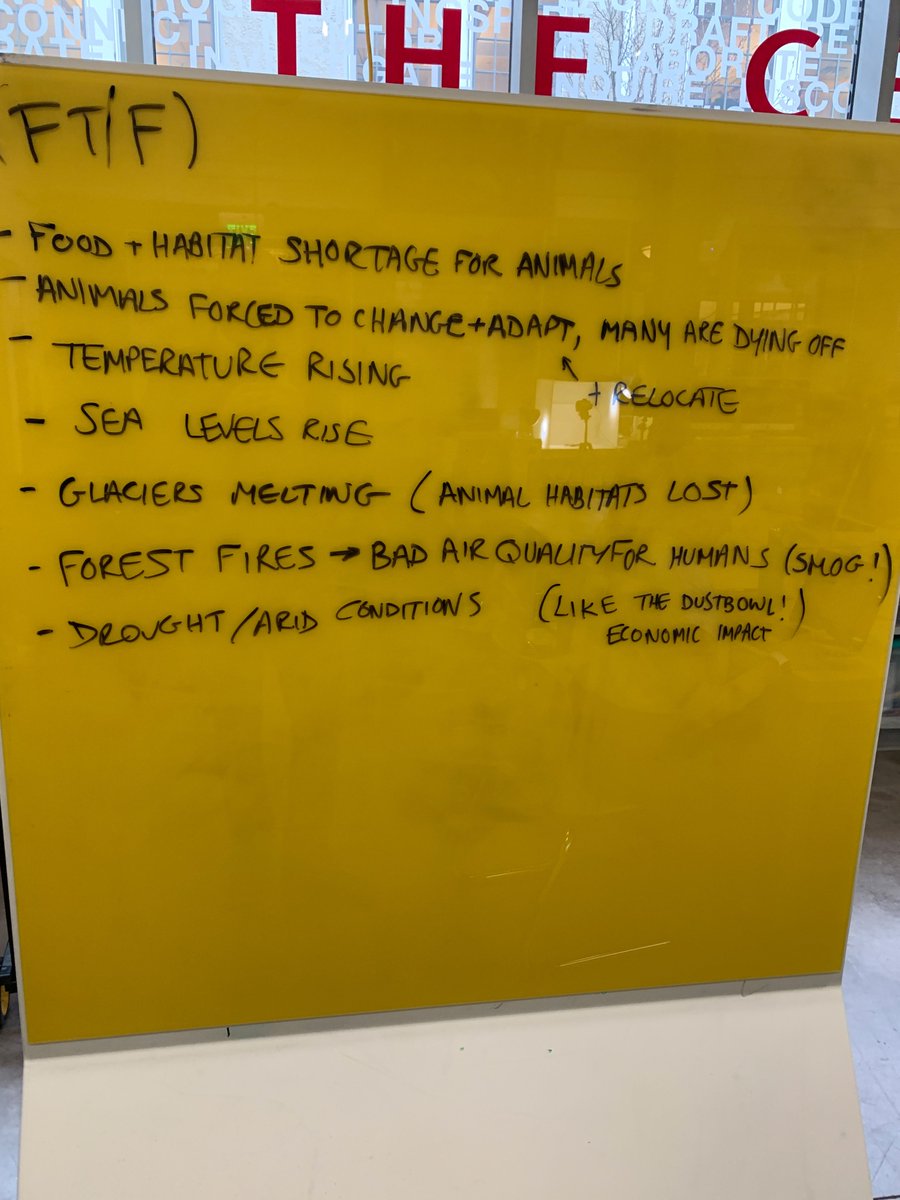 THE C
(FT/F)
- FOOD + HABITAT SHORTAGE FOR ANIMALS
- ANIMALS FORCED TO CHANGE + ADAPT, MANY ARE DYING OFF
+ RELOCATE
- TEMPERATURE RISING
- SEA LEVELS RISE
- GLACIERS MELTING (ANIMAL HABITATS LOST)
- FOREST FIRES → BAD AIR QUALITY FOR HUMANS (SMOG!)
- DROUGHT/ARID CONDITIONS (LIKE THE DUSTBOWL!)
ECONOMIC IMPACT